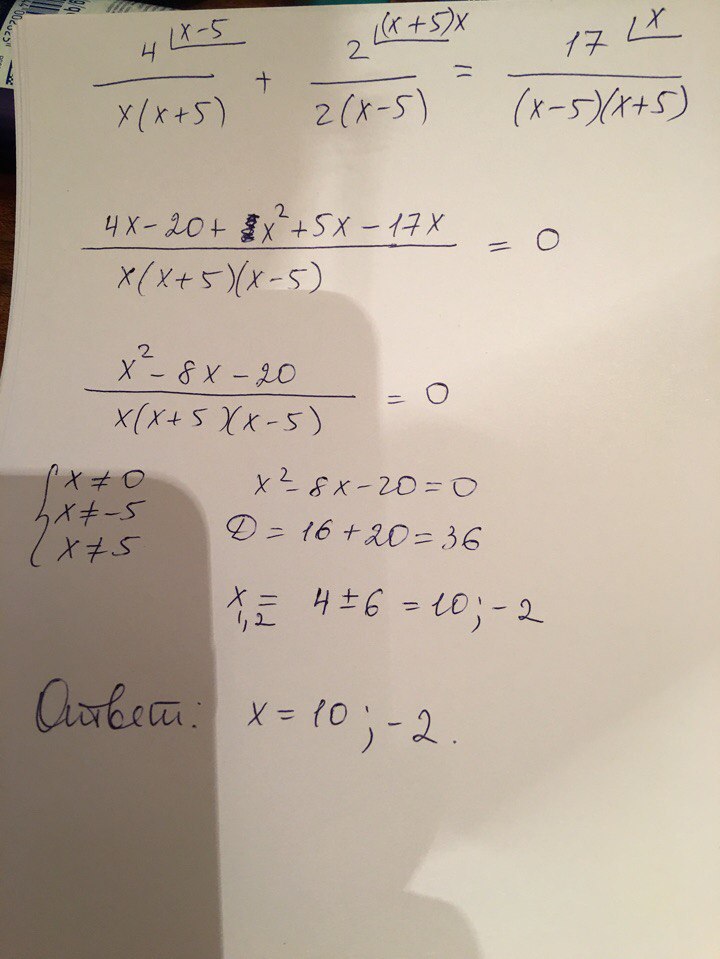 4 ⌊x-5 / x(x+5) + 2 ⌊(x+5)x / 2(x-5) = 17 ⌊x / (x-5)(x+5)
4x - 20 + x² + 5x - 17x / x(x+5)(x-5) = 0
x² - 8x - 20 / x(x+5)(x-5) = 0
{ x ≠ 0
x ≠ -5
x ≠ 5
x² - 8x - 20 = 0
D = 16 + 20 = 36
x₁,₂ = 4 ± 6 = 10; -2
Ответ: x = 10; -2.